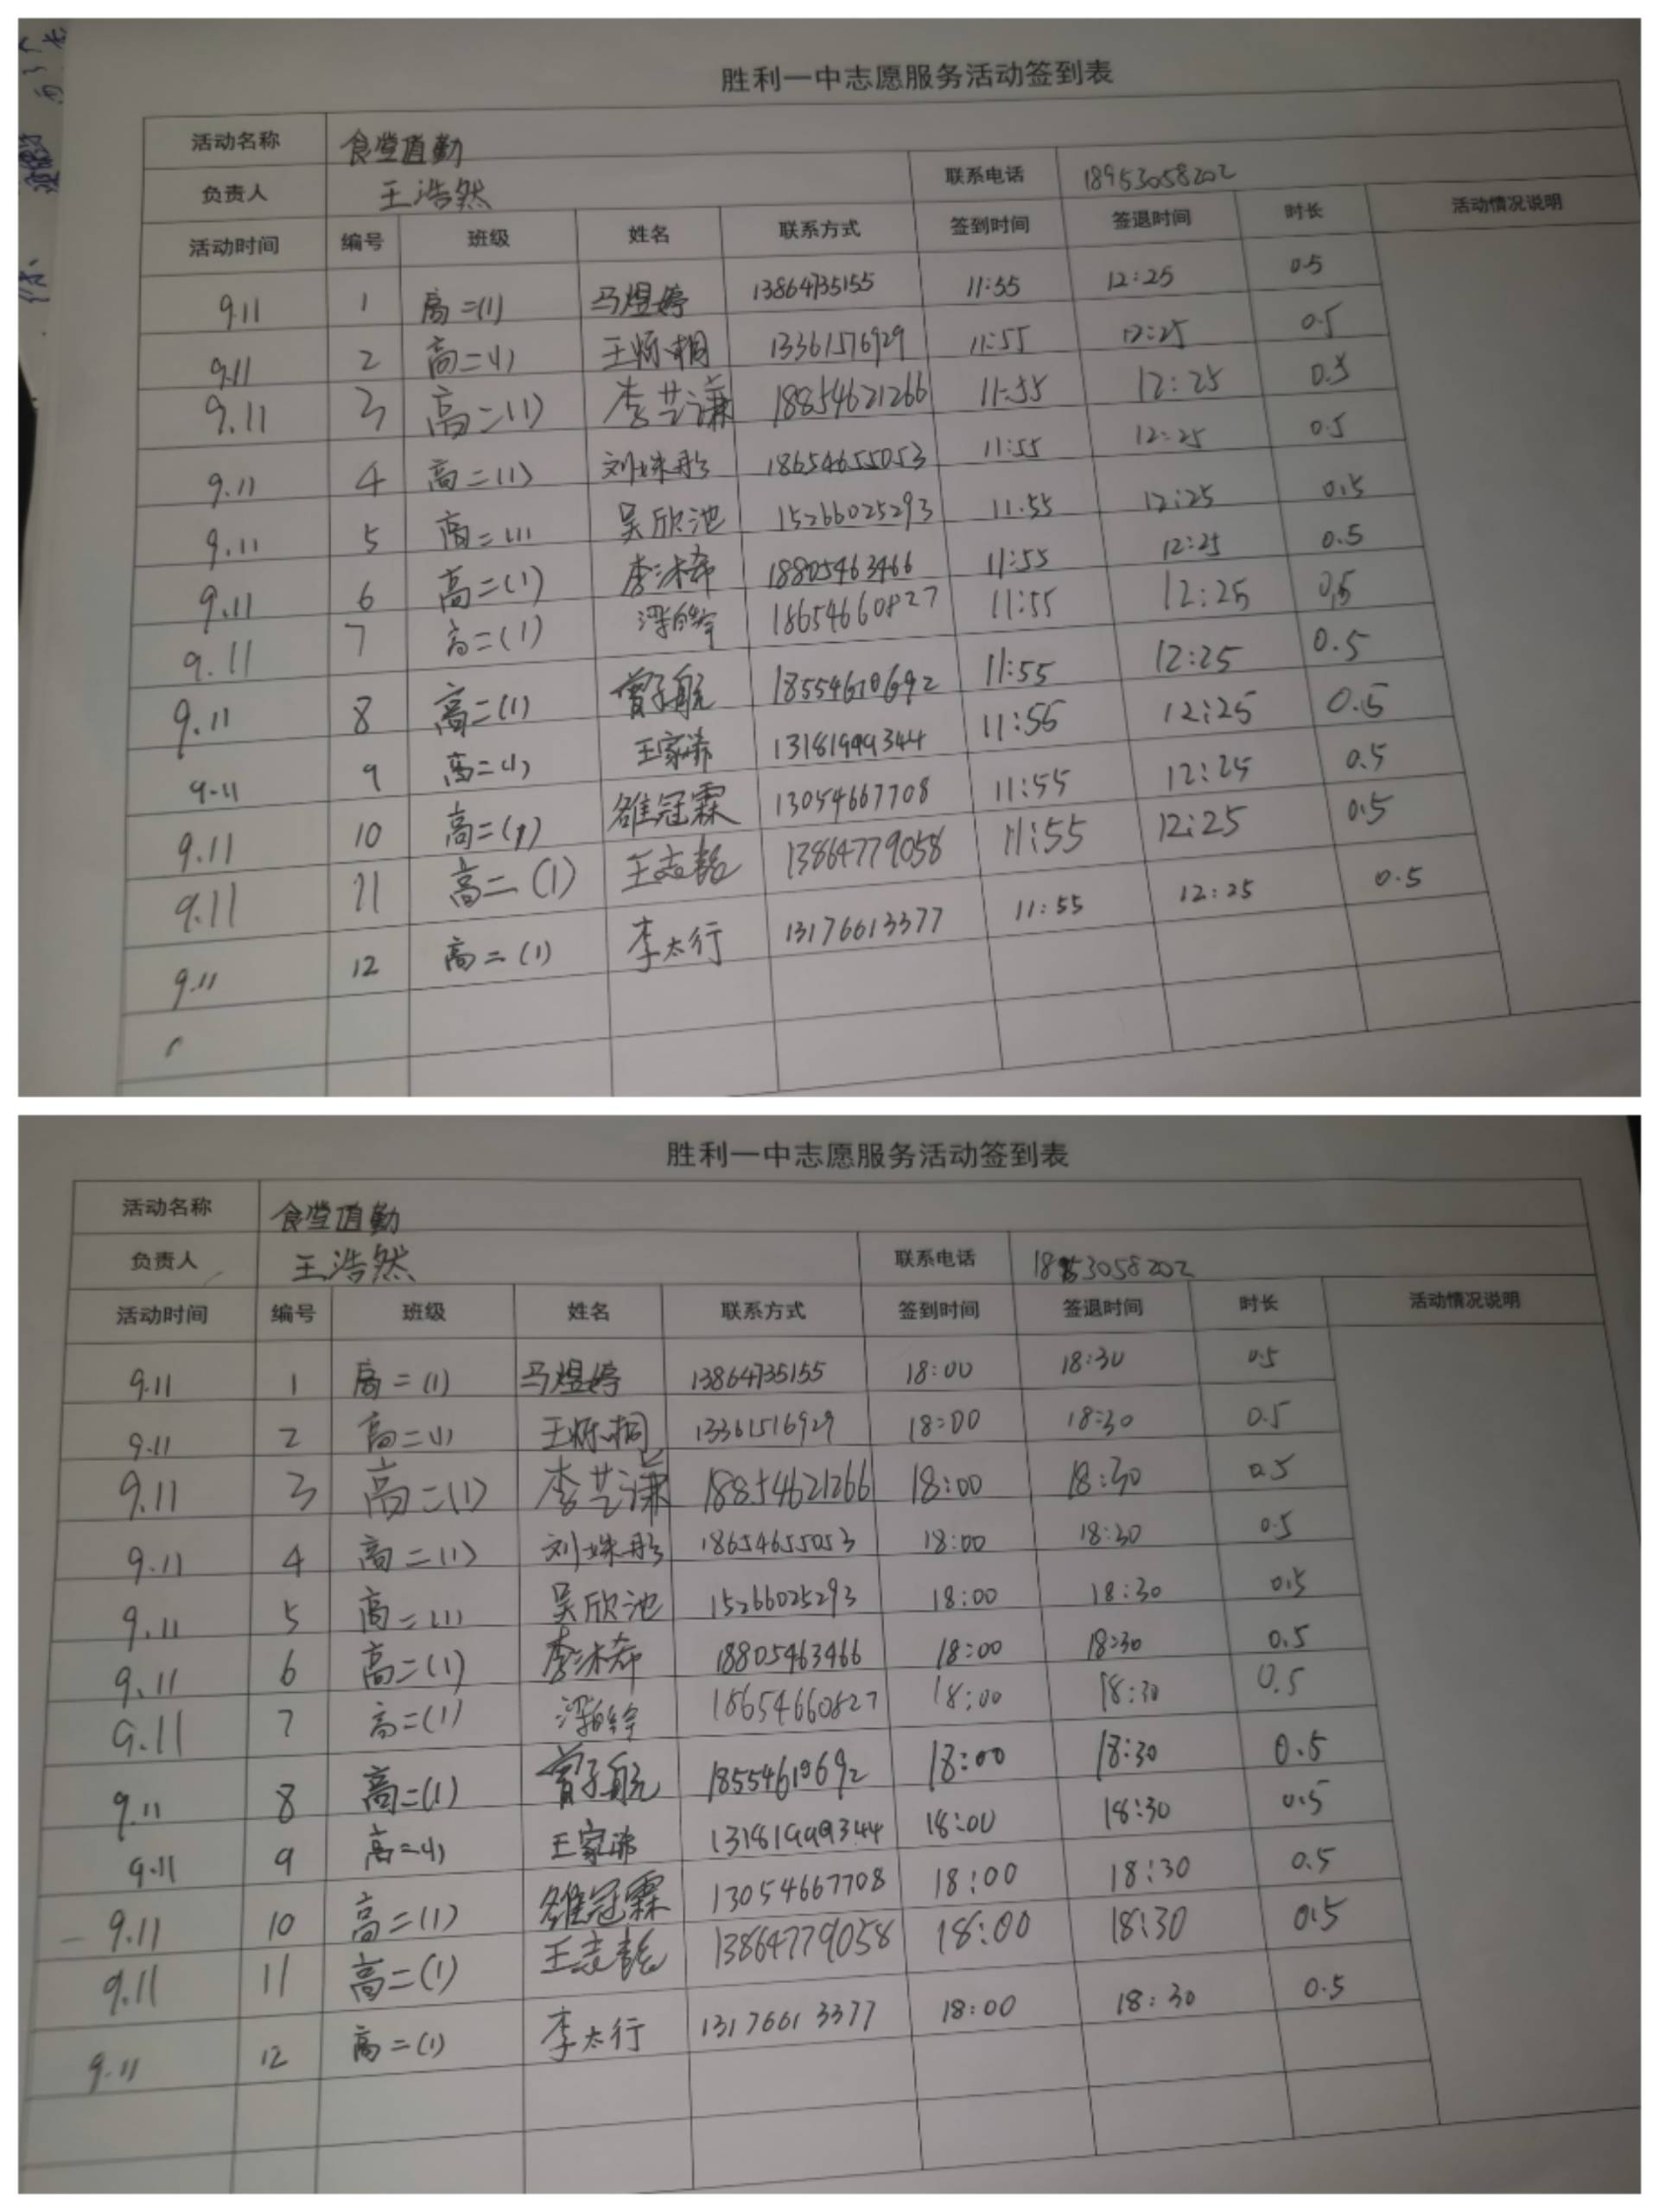 胜利一中志愿服务活动签到表
活动名称 食堂值勤
负责人 王浩然 联系电话 18953058202
活动时间 编号 班级 姓名 联系方式 签到时间 签退时间 时长 活动情况说明
9.11 1 高二(1) 马煜婷 13864735155 11:55 12:25 0.5
9.11 2 高二(1) 王烁桐 11:55 12:25 0.5
9.11 3 高二(1) 李芸谦 18854621266 11:55 12:25 0.5
9.11 4 高二(1) 刘姝彤 18654655053 11:55 12:25 0.5
9.11 5 高二(1) 吴欣池 15266025293 11:55 12:25 0.5
9.11 6 高二(1) 李沐希 18805463466 11:55 12:25 0.5
9.11 7 高二(1) 18654660827 11:55 12:25 0.5
9.11 8 高二(1) 曾子航 11:55 12:25 0.5
9.11 9 高二(1) 13181999344 11:55 12:25 0.5
9.11 10 高二(1) 冠霖 13054667708 11:55 12:25 0.5
9.11 11 高二(1) 13864779058 11:55 12:25 0.5
9.11 12 高二(1) 李太行 13176613377 11:55 12:25 0.5
胜利一中志愿服务活动签到表
活动名称 食堂值勤
负责人 王浩然 联系电话 18953058202
活动时间 编号 班级 姓名 联系方式 签到时间 签退时间 时长 活动情况说明
9.11 1 高二(1) 马煜婷 13864735155 18:00 18:30 0.5
9.11 2 高二(1) 王烁桐 18:00 18:30 0.5
9.11 3 高二(1) 李芸谦 18854621266 18:00 18:30 0.5
9.11 4 高二(1) 刘姝彤 18654655053 18:00 18:30 0.5
9.11 5 高二(1) 吴欣池 15266025293 18:00 18:30 0.5
9.11 6 高二(1) 李沐希 18805463466 18:00 18:30 0.5
9.11 7 高二(1) 18654660827 18:00 18:30 0.5
9.11 8 高二(1) 曾子航 18:00 18:30 0.5
9.11 9 高二(1) 13181999344 18:00 18:30 0.5
9.11 10 高二(1) 冠霖 13054667708 18:00 18:30 0.5
9.11 11 高二(1) 13864779058 18:00 18:30 0.5
9.11 12 高二(1) 李太行 13176613377 18:00 18:30 0.5